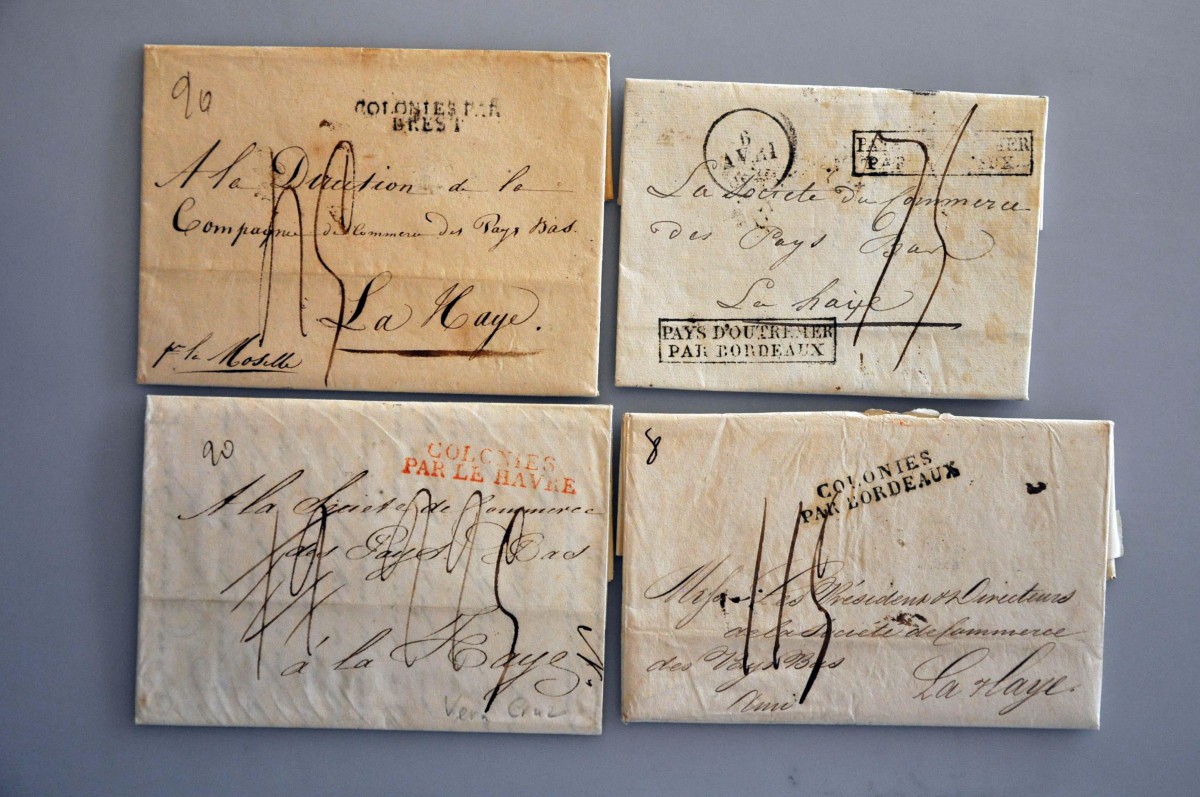 96
COLONIES PAR
BREST
A la Direction de la
Compagnie de Commerce des Pays Bas.
La Haye.
pr le Moselle
6
AVRIL
PAYS D'OUTREMER
PAR BORDEAUX
La Societé du Commerce
des Pays Bas
La haije
PAYS D'OUTREMER
PAR BORDEAUX
90
COLONIES
PAR LE HAVRE
A la Societé de Commerce
des Pays Bas
à la Haye
Vera Cruz
8
COLONIES
PAR BORDEAUX
Les Président & Directeurs
de la Société de Commerce
des Pays Bas
La Haye.